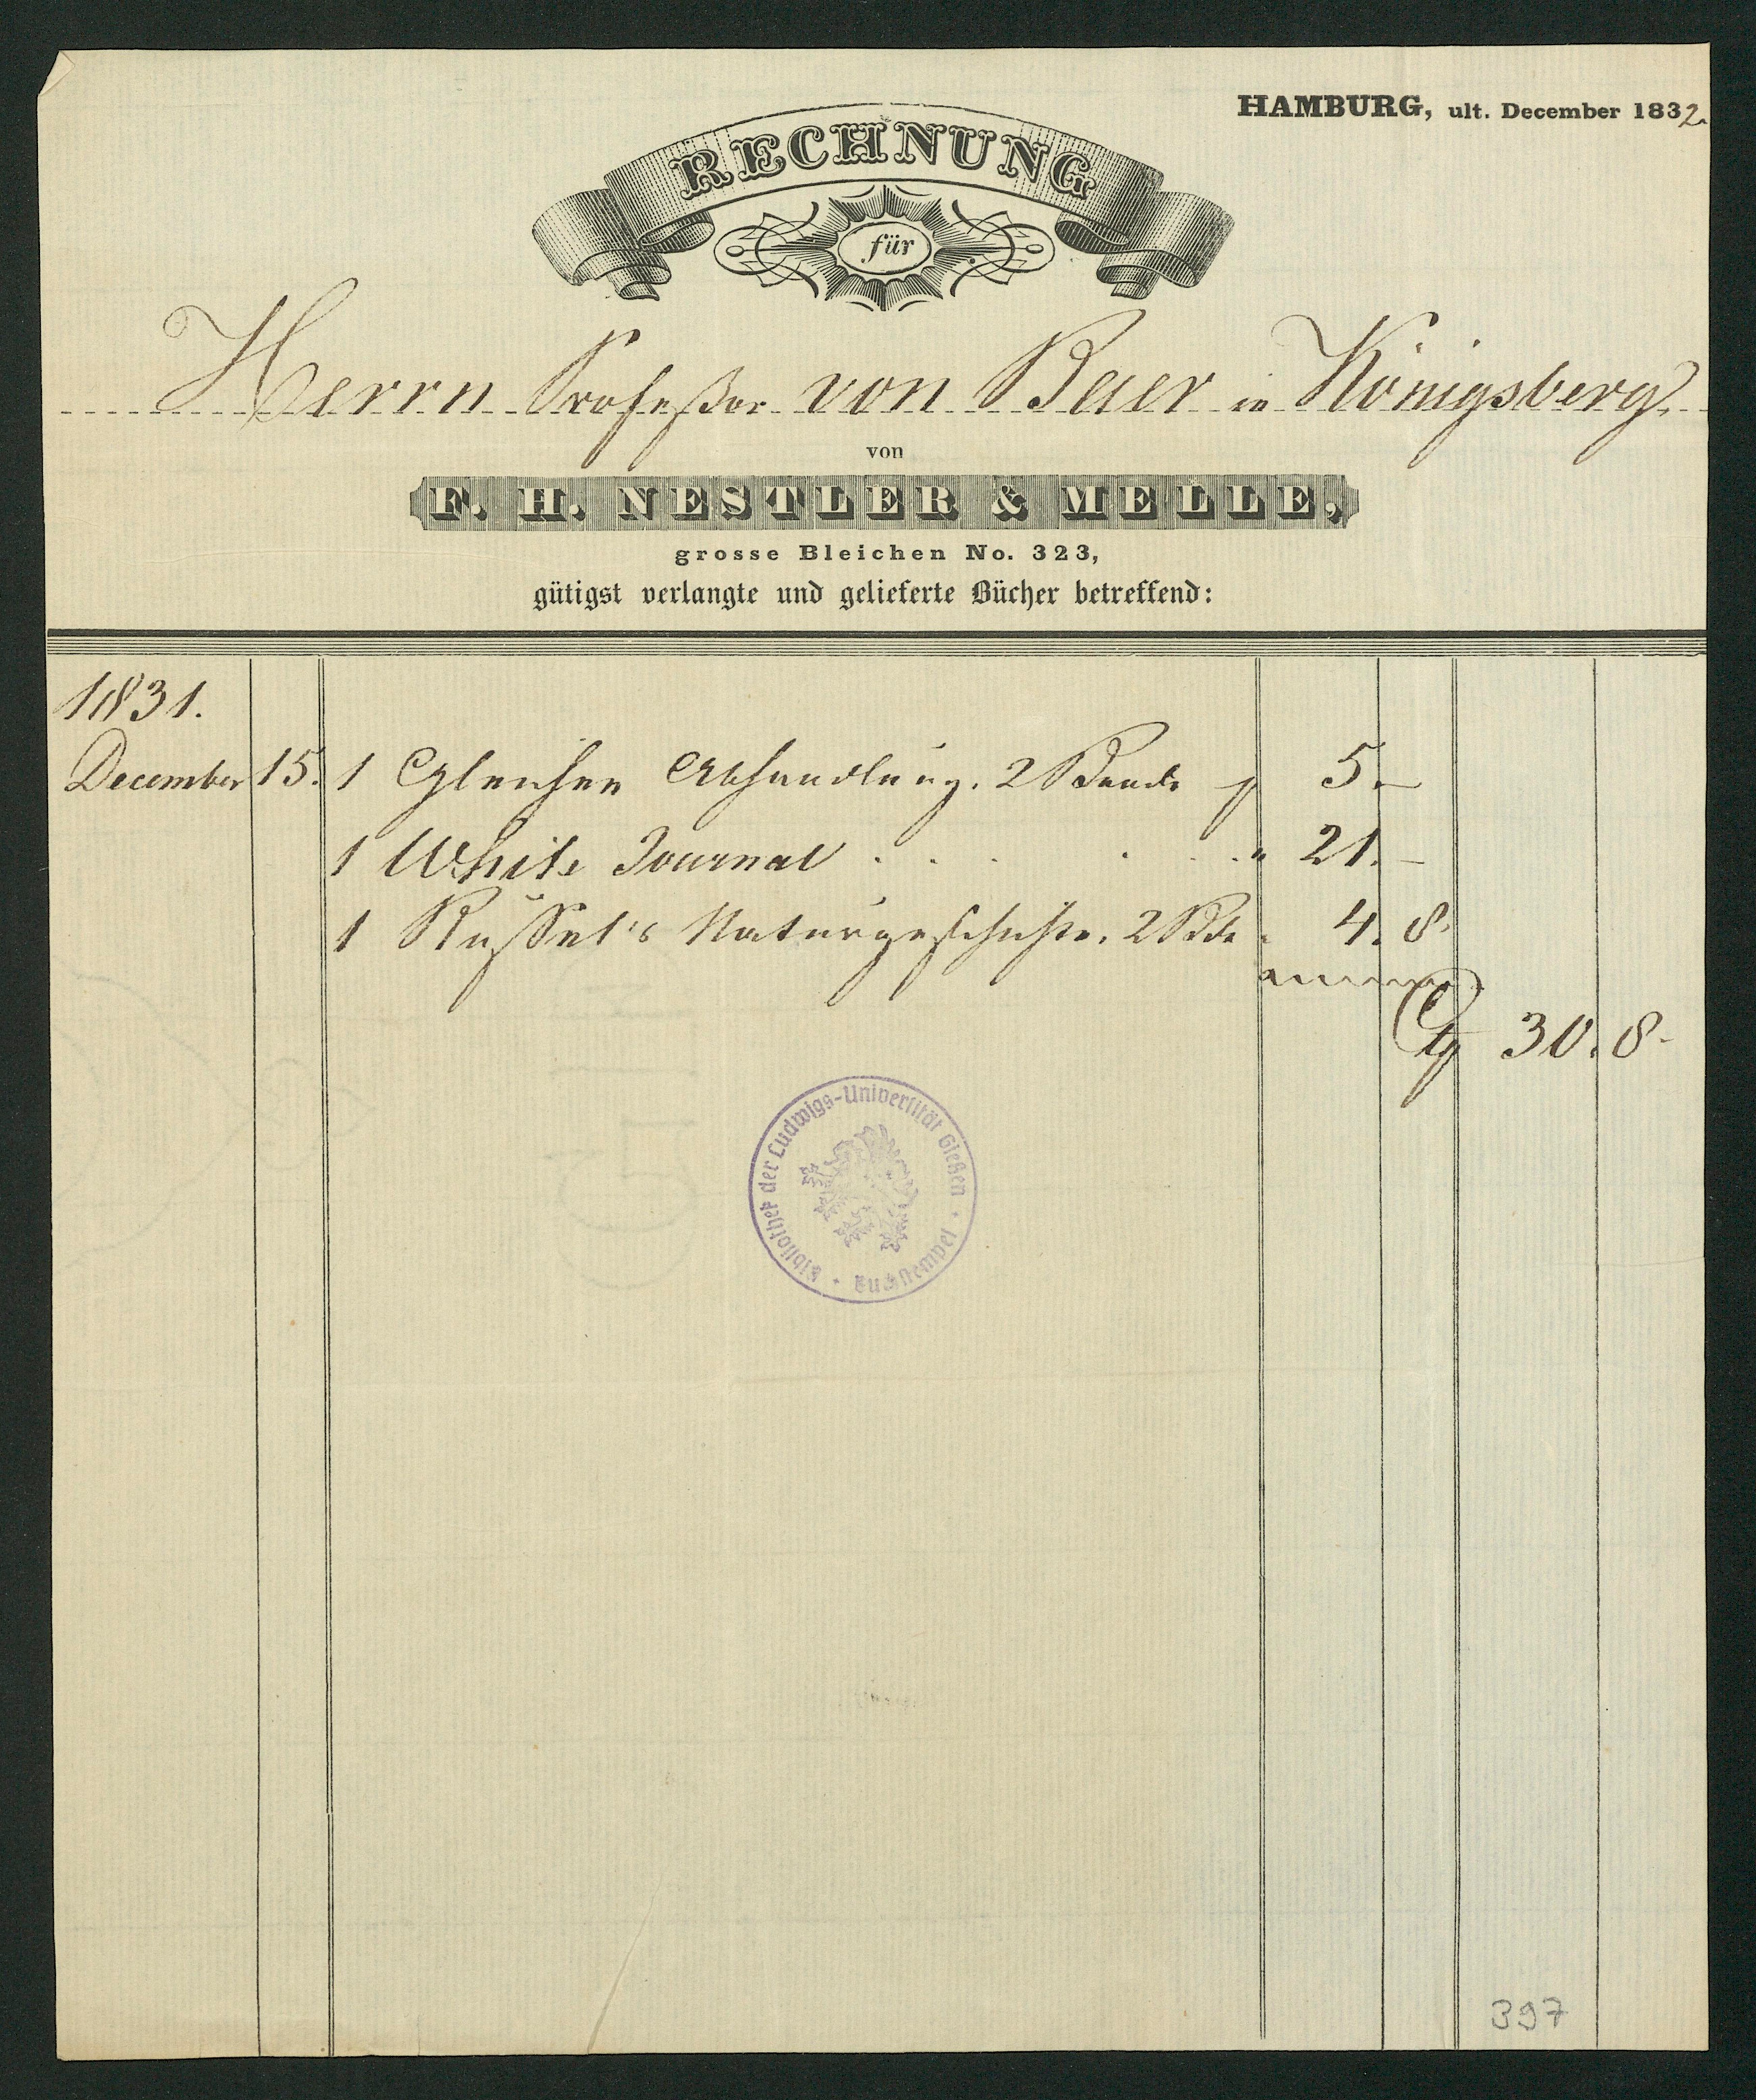 HAMBURG, ult. December 1832.
RECHNUNG
für
Herrn Profeßor von Baer in Königsberg.
von
F. H. NESTLER & MELLE,
grosse Bleichen No. 323,
gütigst verlangte und gelieferte Bücher betreffend:
1831.
December 15. 1 Gleichen Abhandlung. 2 Bande 5.–
1 White Journal . . . . . . " 21.–
1 Rußel's Naturgeschichte. 2 Bde 4. 8.
30. 8.
Bibliothek der Ludwigs-Universität Gießen · Buchstempel ·
397